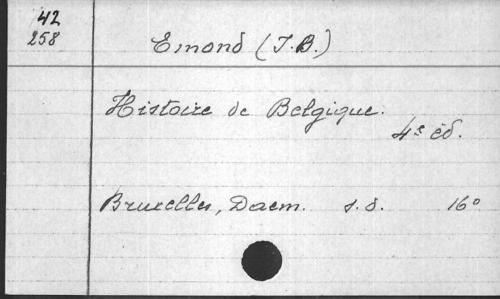 42
258
Emond (J.B.)
Histoire de Belgique.
4e éd.
Bruxelles, Daem. s.d. 16°